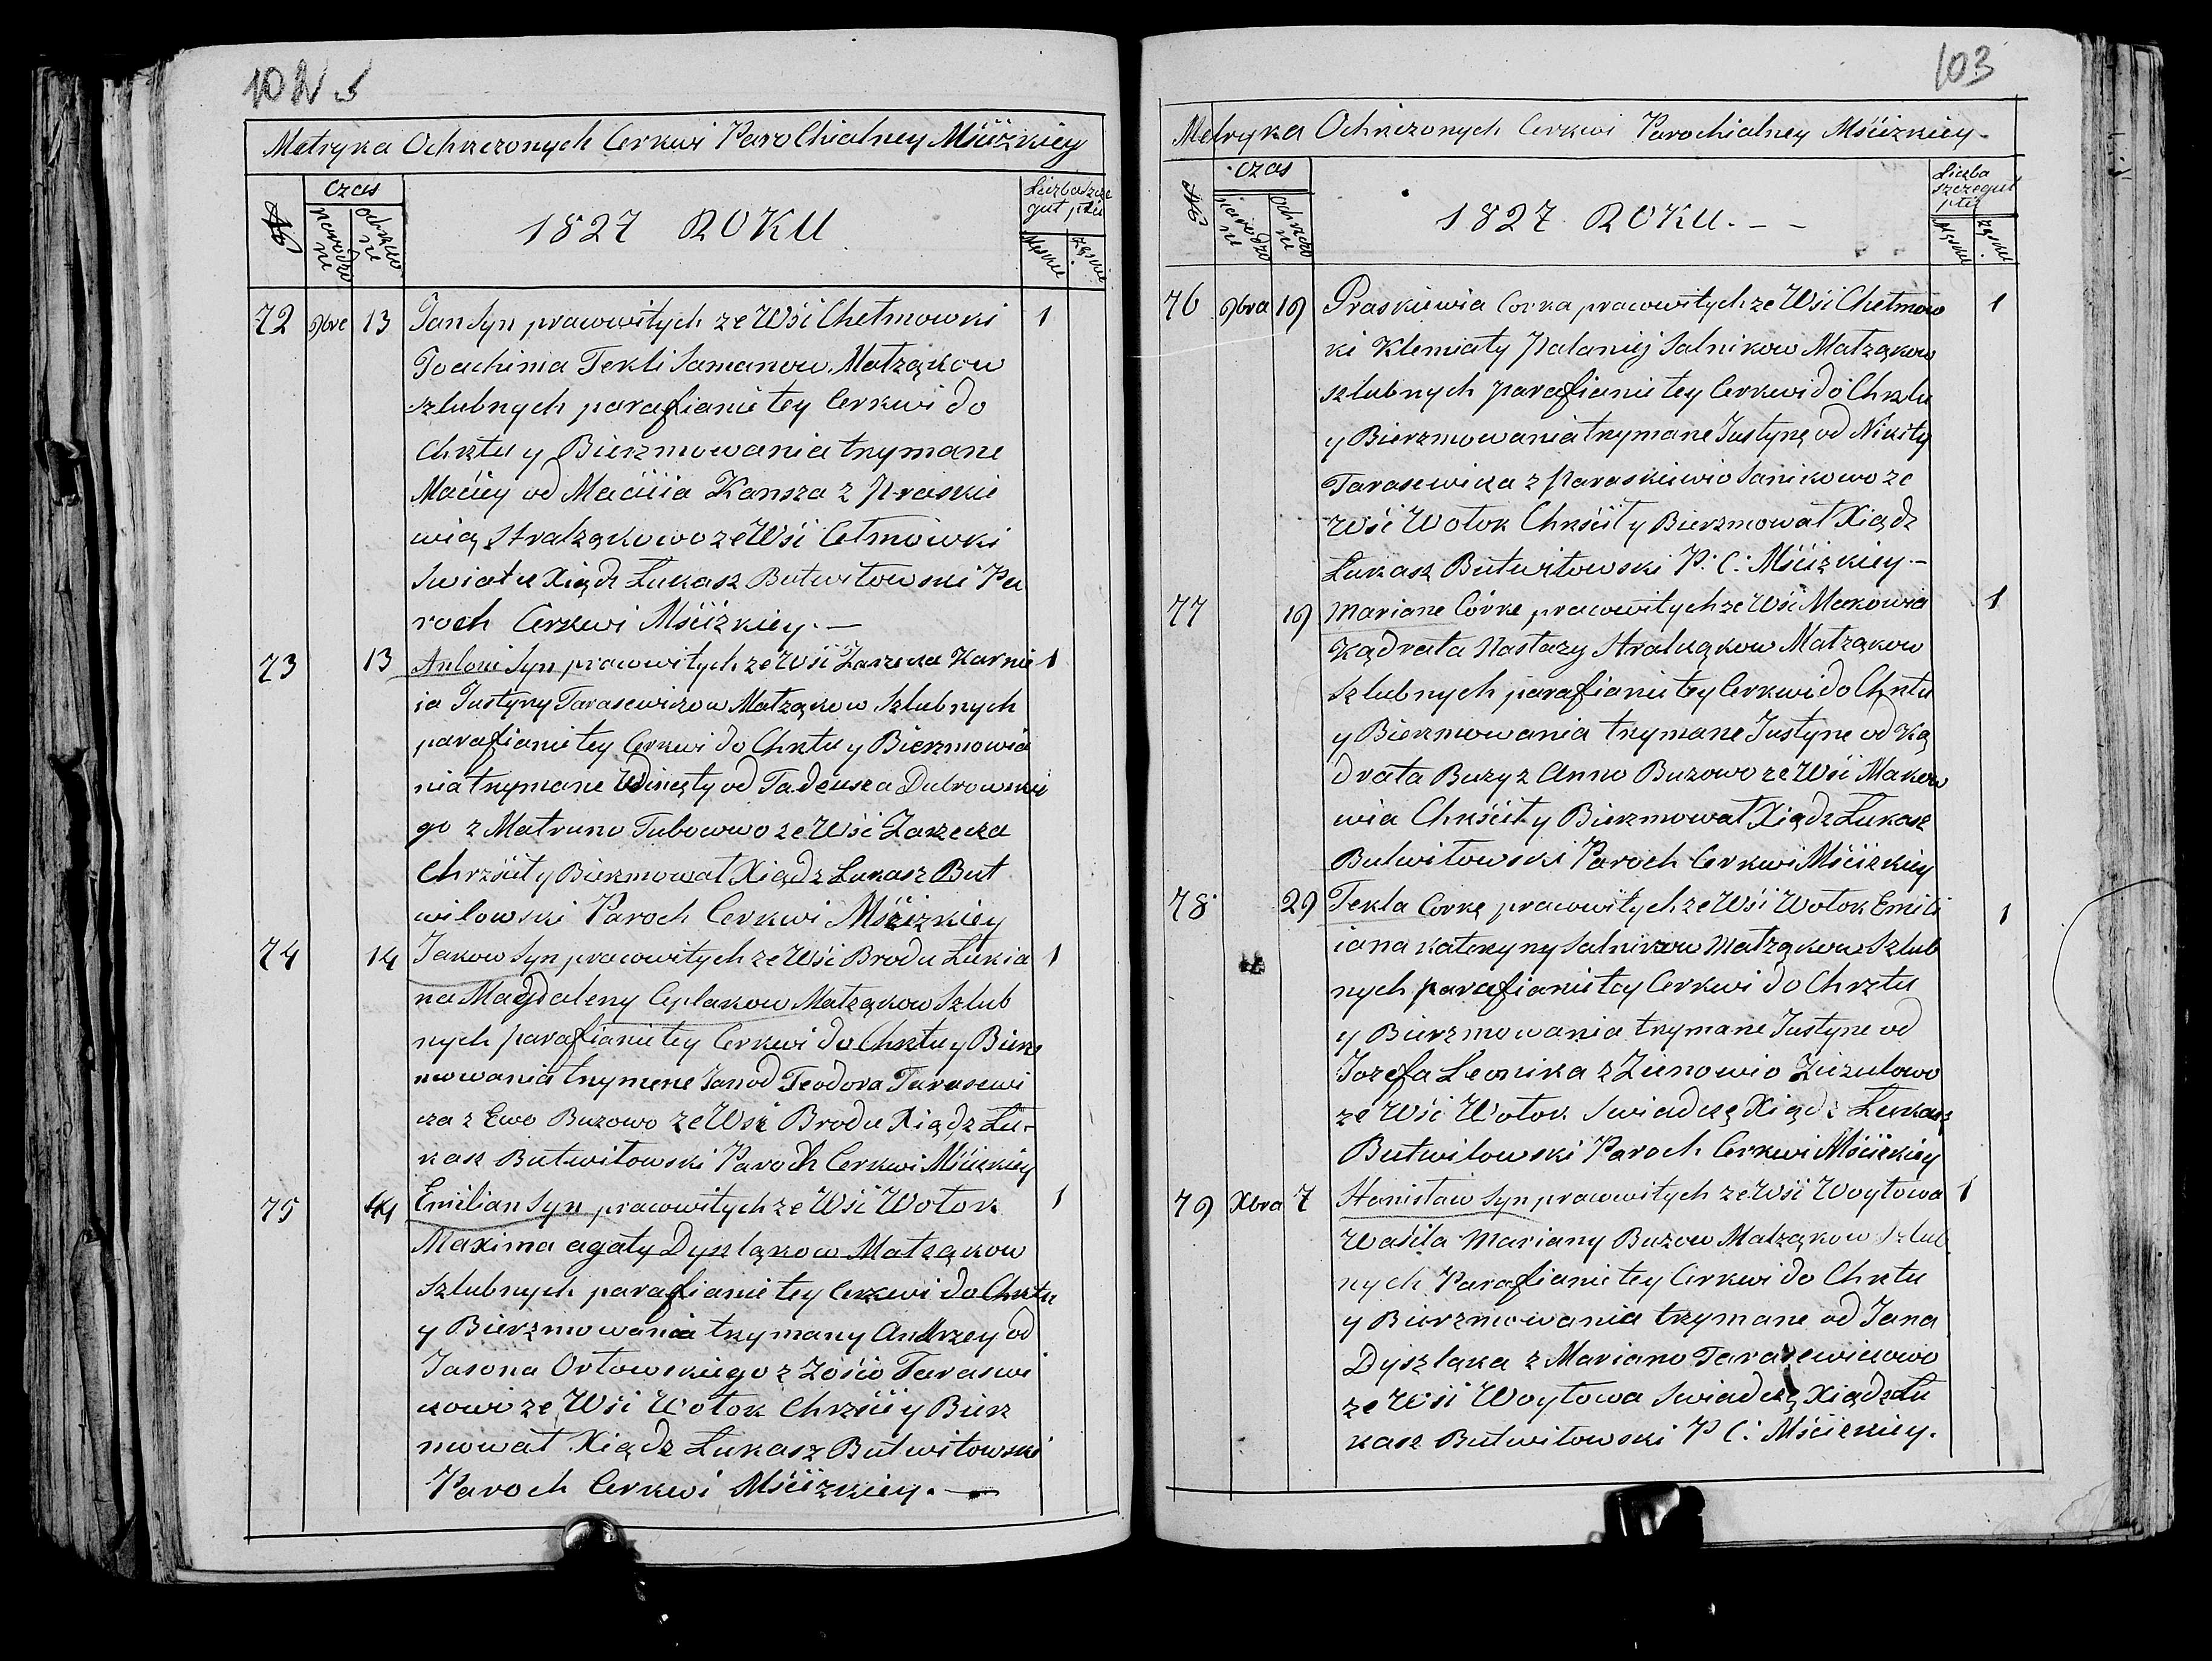 102
Metryka Ochrzczonych Cerkwi Parochialney Mścizkiey
№
czas
narodze
nie
ochrzcze
nie
1827 ROKU
Liczba szcze
guł płci
Męzkiey
72 9bre 13 Jan Syn pracowitych ze Wśi Chełmowki 1
Joachima Tekli Samanow Małżąkow
szlubnych parafianie tey Cerkwi do
Chrztu y Bierzmowania trzymane
Maćiey od Maćiia Kansza z Praskie
wią Stralżąkowo ze Wśi Cełmowki
Swiatu Xiądz Łukasz Butwiłowski Pa
roch Cerkwi Mścizkiey. —
73 13 Antoni Syn pracowitych ze Wśi Zarzecza Karnie 1
ia Justyny Tarasewiczow Małżąkow Szlubnych
parafianie tey Cerkwi do Chrztu y Bierzmowia
nia trzymane Wincęty od Tadeusza Dubrowskie
go z Matruno Tubowwo ze Wśi Zarzecza
Chrzśćił y Bierzmował Xiądz Łukasz But
wilowski Paroch Cerkwi Mścizkiey
74 14 Jakow Syn pracowitych ze Wśi Brodu Łukia 1
na Magdaleny Cęplakow Małżąkow Szlub
nych parafianie tey Cerkwi do Chrztu y Bierz
mowania trzymene Jan od Teodora Tarasewi
cza z Ewo Buzowo ze Wśi Brodu Xiądz Łu-
kasz Butwiłowski Paroch Cerkwi Mścizkiey
75 14 Emilian Syn pracowitych ze Wśi Wołok 1
Maxima agaty Dyszląkow Małżąkow
Szlubnych parafianie tey Cerkwi do Chrztu
y Bierzmowania trzymany Andrzey od
Jasona Orłowskiego z Zośio Taraswi
czowi ze Wśi Wołok Chrzśćił y Bierz
mował Xiądz Łukasz Butwiłowski
Paroch Cerkwi Mścizkiey. —
103
Metryka Ochrzczonych Cerkwi Parochialney Mścizkiey -
№
czas
ochrzcze
nie
1827 ROKU. - -
Liczba
szczeguł
płci
76 9bra 19 Praskiewia Corka pracowitych ze Wśi Chełmow 1
ki Klemiaty Pałaniej Salnikow Małżąkow
szlubnych parafianie tey Cerkwi do Chrztu
y Bierzmowania trzymane Justynę od Nikity
Tarasewicza z Paraskiewio Sanikowo ze
Wśi Wołok Chrśćił y Bierzmował Xiądz
Łukasz Butwiłowski P: C: Mścizkiey -
77 19 Mariane Córke pracowitych ze Wśi Makowia 1
Kądrata Nastazy Stralcząkow Małżąkow
Szlubnych parafianie tey Cerkwi do Chrztu
y Bierzmowania trzymane Justyne od Ką
drata Buzy z Anno Buzowo ze Wśi Makow
wia Chrśćił y Bierzmował Xiądz Łukasz
Butwiłowski Paroch Cerkwi Mścizkiey
78 29 Tekla Corkę pracowitych ze Wśi Wołok Emili 1
iana Katerzyny Salnikow Małżąkow Szlub
nych parafianie tey Cerkwi do Chrztu
y Bierzmowania trzymane Justyne od
Jozefa Leonika z Zienowio Ziezulowo
ze Wśi Wołok Swiadczę Xiądz Łukasz
Butwiłowski Paroch Cerkwi Mścizkiey
79 Xbra 7 Stanisław Syn pracowitych ze Wśi Woytowa 1
Waśila Mariany Buzow Małżąkow Szlub
nych Parafianie tey Cerkwi do Chrztu
y Bierzmowania trzymane od Jana
Dyszląka z Mariano Tarasewiczowo
ze Wśi Woytowa Swiadczę Xiądz Łu
kasz Butwiłowski P C: Mścizkiey.